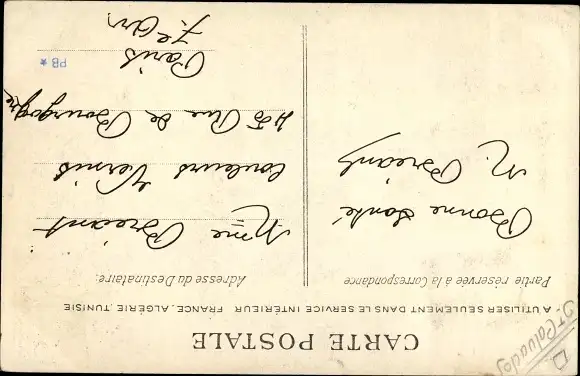 CARTE POSTALE
- A UTILISER SEULEMENT DANS LE SERVICE INTÉRIEUR FRANCE, ALGÉRIE, TUNISIE
Partie réservée à la Correspondance
Bonne Santé
M. Bréant
Adresse du Destinataire.
Mme Bréant
Couleurs Vernis
45 Rue de Bourgogne
Paris
7e Arr
PB *
D
Calvados